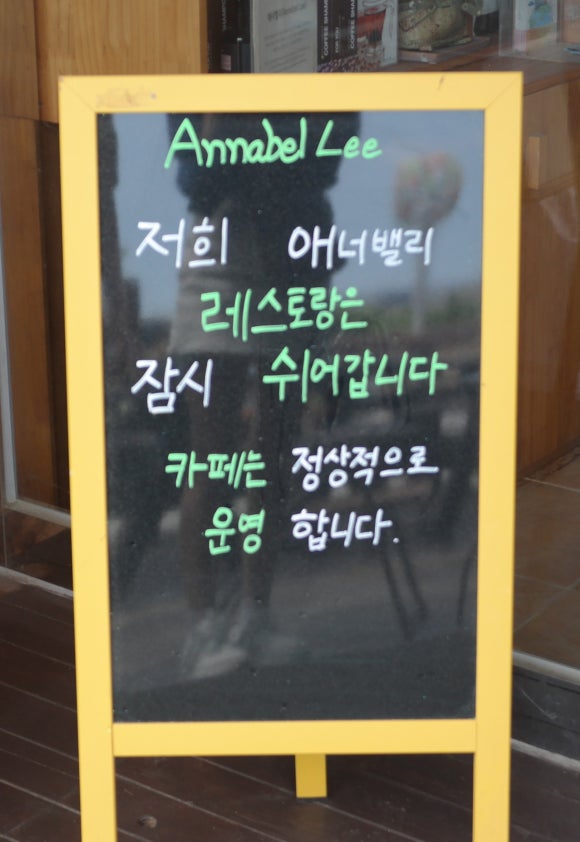 COFFEE SHAMP
COFFEE SHAMP
FOR YOU
Annabel Lee
저희 애너밸리
레스토랑은
잠시 쉬어갑니다
카페는 정상적으로
운영 합니다.